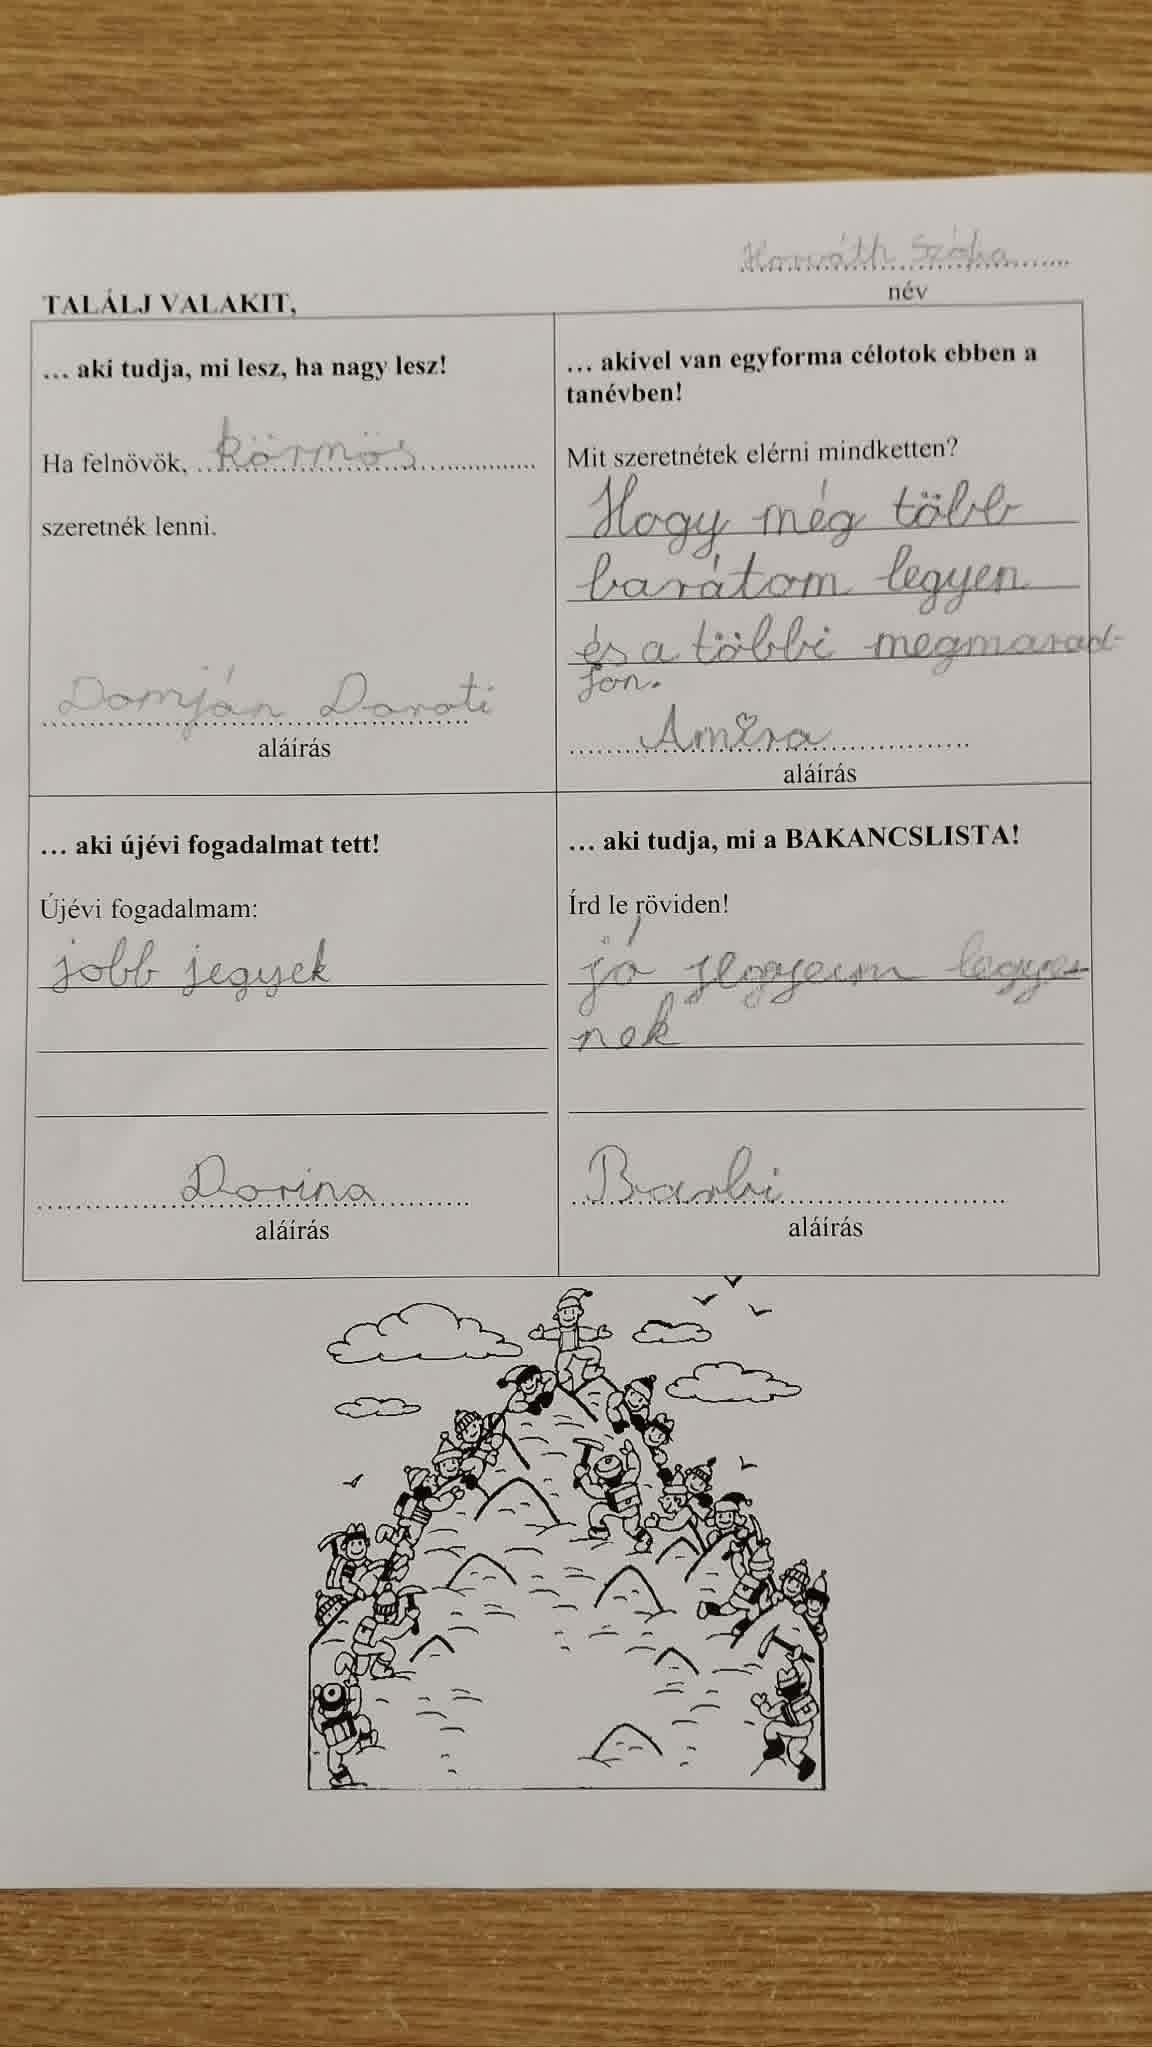 Horváth Szófia
név
TALÁLJ VALAKIT,
… aki tudja, mi lesz, ha nagy lesz!
Ha felnövök, körmös
szeretnék lenni.
Domján Doroti
aláírás
… akivel van egyforma célotok ebben a
tanévben!
Mit szeretnétek elérni mindketten?
Hogy még több
barátom legyen
és a többi megmarad-
jon.
Amira
aláírás
… aki újévi fogadalmat tett!
Újévi fogadalmam:
jobb jegyek
Dorina
aláírás
… aki tudja, mi a BAKANCSLISTA!
Írd le röviden!
jó jegyeim legye-
nek
Barbi
aláírás